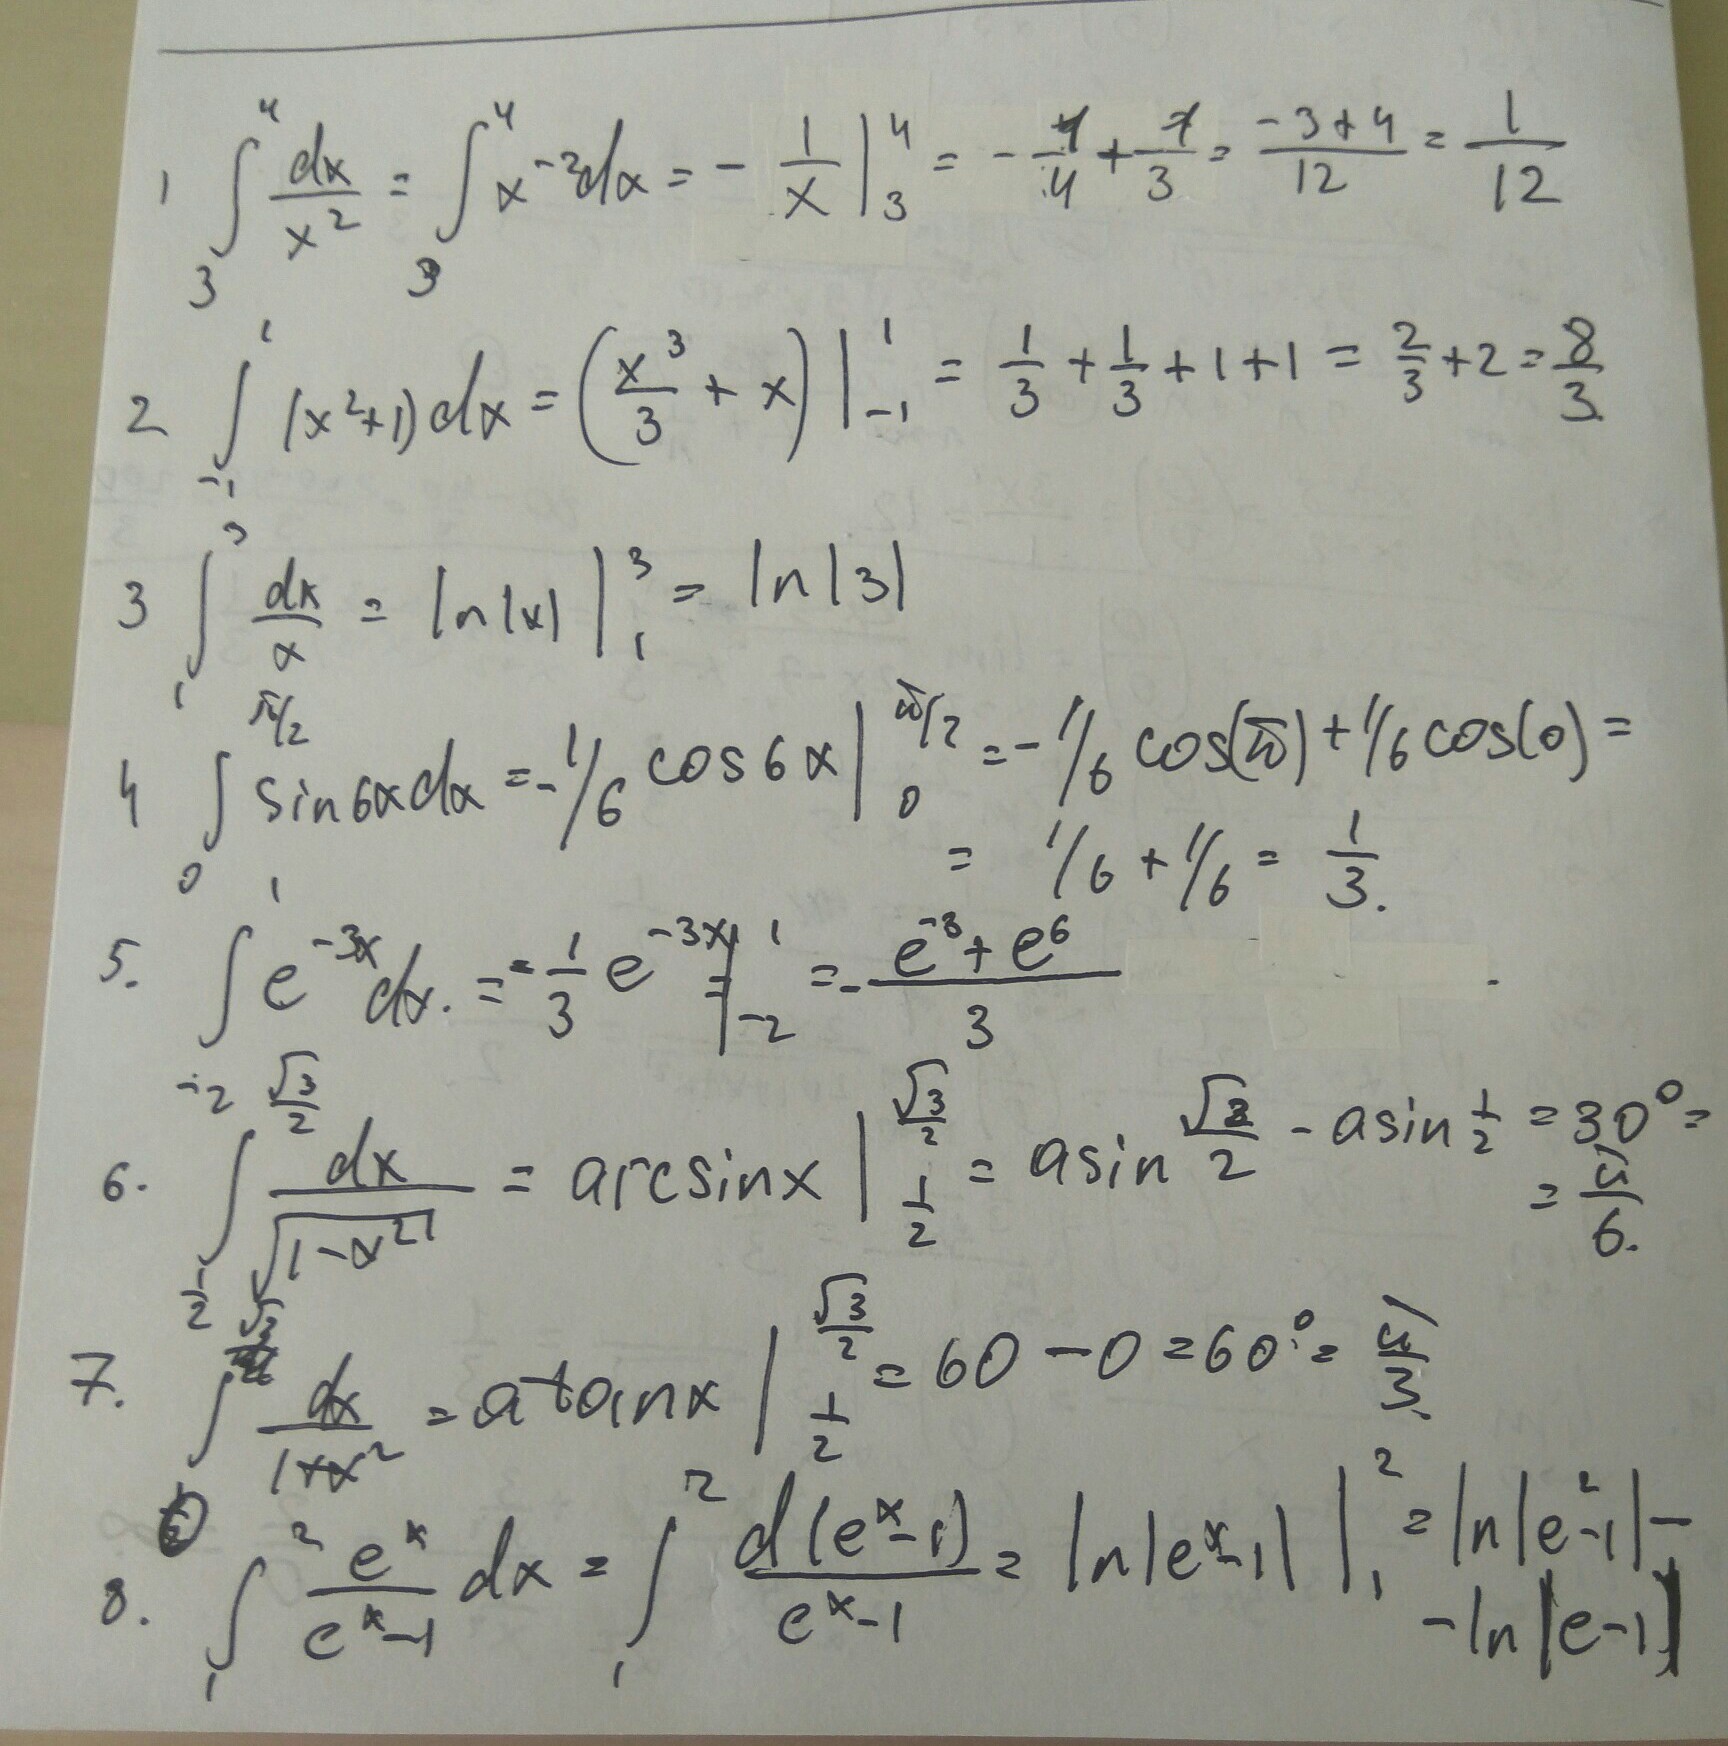 1 ∫₃⁴ dx/x² = ∫₃⁴ x⁻²dx = - 1/x |₃⁴ = - 1/4 + 1/3 = (-3+4)/12 = 1/12
2 ∫₋₁¹ (x²+1)dx = (x³/3 + x) |₋₁¹ = 1/3 + 1/3 + 1 + 1 = 2/3 + 2 = 8/3.
3 ∫₁³ dx/x = ln|x| |₁³ = ln|3|
4 ∫₀^(π/2) sin6xdx = -1/6 cos6x |₀^(π/2) = -1/6 cos(π) + 1/6 cos(0) =
= 1/6 + 1/6 = 1/3.
5. ∫₋₂¹ e^(-3x)dx. = -1/3 e^(-3x) |₋₂¹ = -(e⁻³+e⁶)/3
6. ∫_(1/2)^(√3/2) dx/√(1-x²) = arcsinx |_(1/2)^(√3/2) = asin √3/2 - asin 1/2 = 30° =
= π/6.
7. ∫ dx/(1+x²) = atanx |_(1/2)^(√3/2) = 60 - 0 = 60° = π/3.
8. ∫₁² e^x/(e^x-1) dx = ∫₁² d(e^x-1)/(e^x-1) = ln|e^x-1| |₁² = ln|e²-1| -
- ln|e-1|